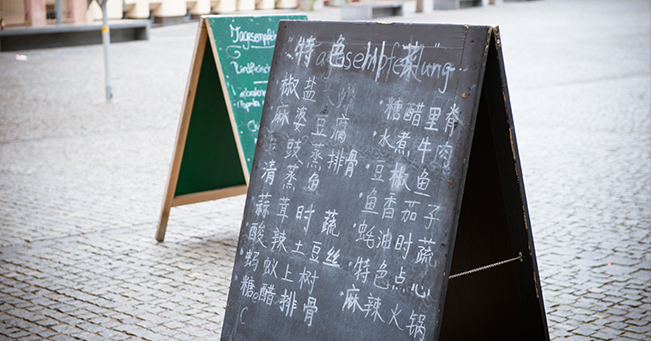 Tagesempfe
特色川菜
椒盐
麻婆豆腐
豉蒸排骨
清蒸鱼
蒜茸时蔬
酸辣土豆丝
蚂蚁上树
糖醋排骨
C
·糖醋里脊
·水煮牛肉
·豆椒鱼
·鱼香茄子
·蚝油时蔬
·特色点心
·麻辣火锅